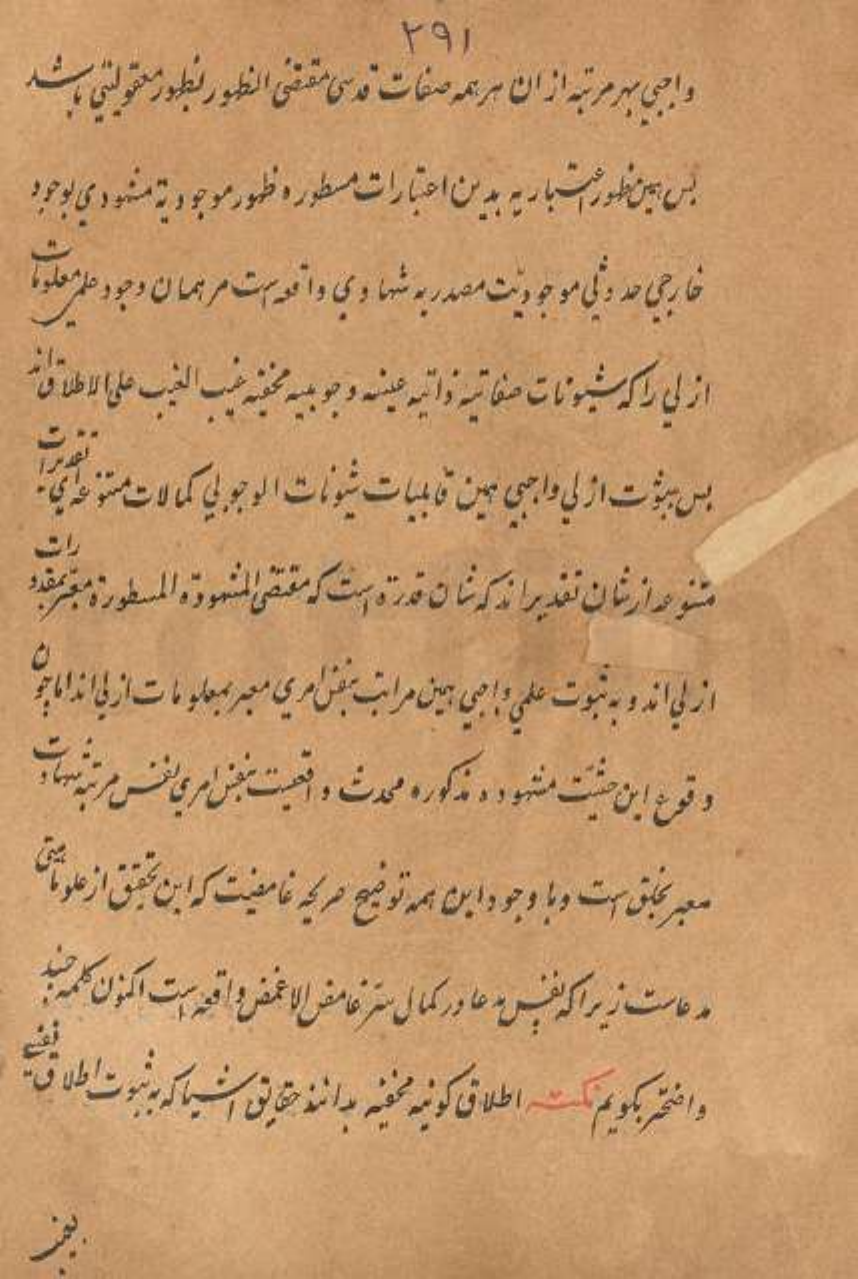 ۳۹۱
واجبي بهر مرتبه از ان هر همه صفات قدسی مقتضی الظهور لظهور معقولیتی باشد
بس همین ظهور اعتباریه بدین اعتبارات مسطوره ظهور موجودیة مشهودي بوجود
خارجي حدوثي موجودیّت مصدریه شهادي واقعه است مر همان وجود علمی معلومات
ازلي را که شیونات صفاتیه ذاتیه عینیه وجوبیه مخفیه غیب الغیب علی الاطلاق اند
بس بثبوت ازلي واجبي همین قابلیات شیونات الوجوبي کمالات متنوعه اي تقدیرات
متنوعه از شان تقدیر اند که شان قدرة است که مقتضی المشهودة المسطورة معبر بمقدورات
ازلي اند و به ثبوت علمي واجبي همین مراتب بنفس امري معبر بمعلومات ازلي اند اما چون
وقوع این حیثیّت مشهوده مذکوره محدث واقعیت بنفس امري لنفس مرتبه شهادت
معبر بخلق است وبا وجود این همه توضیح صریحه غامضیت که این تحقیق از علو ماهیتی
مدعاست زیرا که نفس مدعا در کمال ستر غامض الاغمض واقعه است اکنون کلمه چند
واضحتر بکویم نکته اطلاق کونیه مخفیه بدانند حقایق اشیا که به ثبوت اطلاق